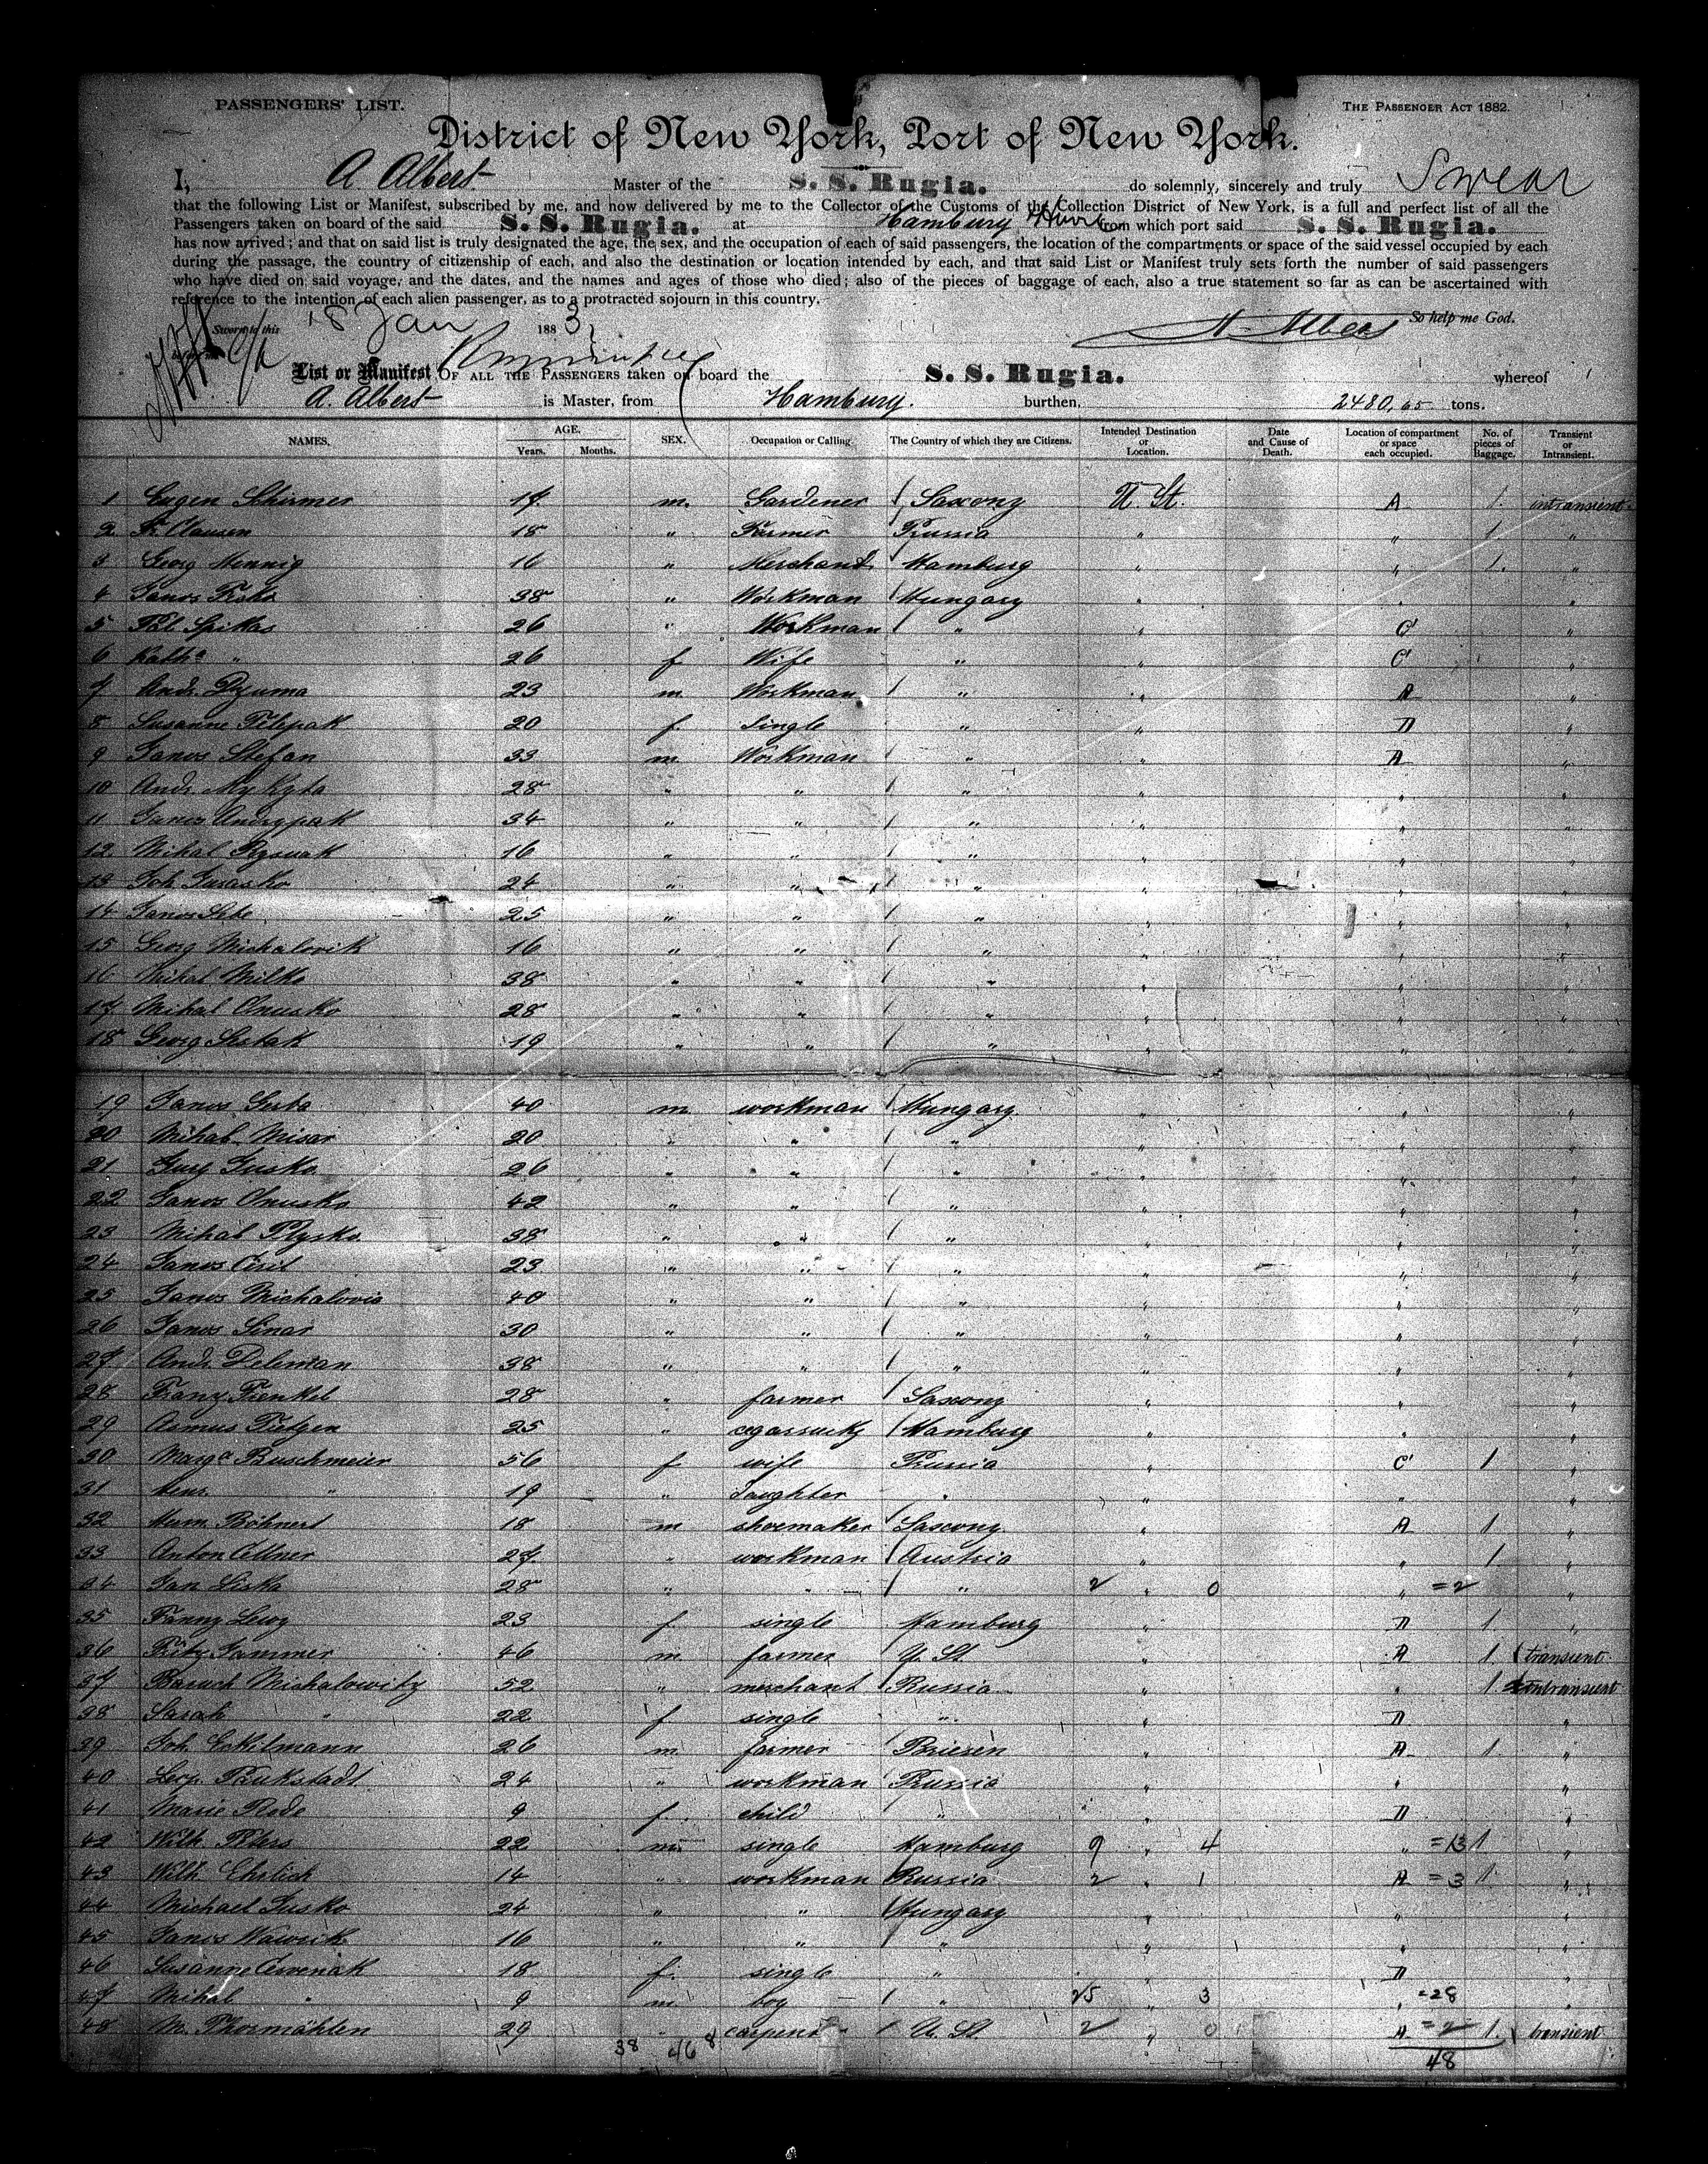 PASSENGERS' LIST.
THE PASSENGER ACT 1882.
District of New York, Port of New York.
I, A Albert Master of the S. S. Rugia. do solemnly, sincerely and truly Swear
that the following List or Manifest, subscribed by me, and now delivered by me to the Collector of the Customs of the Collection District of New York, is a full and perfect list of all the
Passengers taken on board of the said S. S. Rugia. at Hamburg from which port said S. S. Rugia.
has now arrived; and that on said list is truly designated the age, the sex, and the occupation of each of said passengers, the location of the compartments or space of the said vessel occupied by each
during the passage, the country of citizenship of each, and also the destination or location intended by each, and that said List or Manifest truly sets forth the number of said passengers
who have died on said voyage, and the dates, and the names and ages of those who died; also of the pieces of baggage of each, also a true statement so far as can be ascertained with
reference to the intention of each alien passenger, as to a protracted sojourn in this country.
Sworn to this 18 Jan 1883, So help me God.
A. Albers
List or Manifest OF ALL THE PASSENGERS taken on board the S. S. Rugia. whereof
A. Albert is Master, from Hamburg. burthen, 2480,65 tons.
NAMES. AGE. Years. Months. SEX. Occupation or Calling. The Country of which they are Citizens. Intended Destination or Location. Date and Cause of Death. Location of compartment or space each occupied. No. of pieces of Baggage. Transient or Intransient.
1 Eugen Schirmer 17 m. Gardener Saxony U. St. A 1. intransient
2 Fr. Clausen 18 " Farmer Prussia " " 1 "
3 Georg Hennig 16 " Merchant Hamburg " " 1. "
4 Janos Fesko 38 " Workman Hungary " " "
5 Pal Spikas 26 " Workman " " C "
6 Katha " 26 f Wife " " C "
7 Andr. Dzuma 23 m Workman " " A "
8 Susanne Filepak 20 f. Single " D "
9 Janos Stefan 33 m Workman " " A "
10 Andr. Mykyta 28 " " " " " "
11 Janos Andrypak 34 " " " " " "
12 Mihal 16 " " " " " "
13 Joh. Jurasko 24 " " " " " "
14 Janos 25 " " " " " "
15 Georg Michalovik 16 " " " " " "
16 Mihal Milko 38 " " " " " "
17 Mihal Onusko 28 " " " " " "
18 Georg Sestak 19 " " " " " "
19 Janos 40 m workman Hungary " " "
20 Mihal Misar 20 " " " " " "
21 Georg Jusko 26 " " " " " "
22 Janos Onusko 42 " " " " " "
23 Mihal Plysko 38 " " " " " "
24 Janos 23 " " " " " "
25 Janos Michalovic 40 " " " " " "
26 Janos Sinar 30 " " " " " "
27 Andr. Deleman 38 " " " " " "
28 Franz Frenkel 28 " farmer Saxony " " "
29 Asmus Tietgen 25 " Hamburg " " "
30 Marga Buschmeier 56 f wife Prussia " C 1 "
31 Henr. " 19 " Daughter " " " "
32 Herm. Böhnert 18 m shoemaker Saxony " A 1 "
33 Anton Cellner 27 " workman Austria " " 1. "
34 Jan Liska 28 " " " 2 " 0 " =2 "
35 Fanny Levy 23 f. single Hamburg " D 1. "
36 Fritz Gammer 46 m farmer U. St. " A 1 transient
37 Baruch Michalowitz 52 " merchant Russia " " 1 intransient
38 Sarah " 22 f single " " D "
39 Joh. 26 m farmer " A 1. "
40 Leop. Prukstadt 24 " workman Prussia " " "
41 Marie Rode 9 f. child " " D "
42 Wilh. Peters 22 m single Hamburg 9 " 4 " =13 1 "
43 Wilh. Ehrlich 14 " workman Russia 2 " 1 A =3 1 "
44 Michael Jusko 24 " " Hungary " " "
45 Janos Wawrik 16 " " " " " "
46 Susanne Cervenak 18 f. single " " D "
47 Mihal " 9 m boy " 25 " 3 " =28 "
48 M. Thormählen 29 " carpent U. St 2 " 0 A =2 1. transient
38 46 8 48